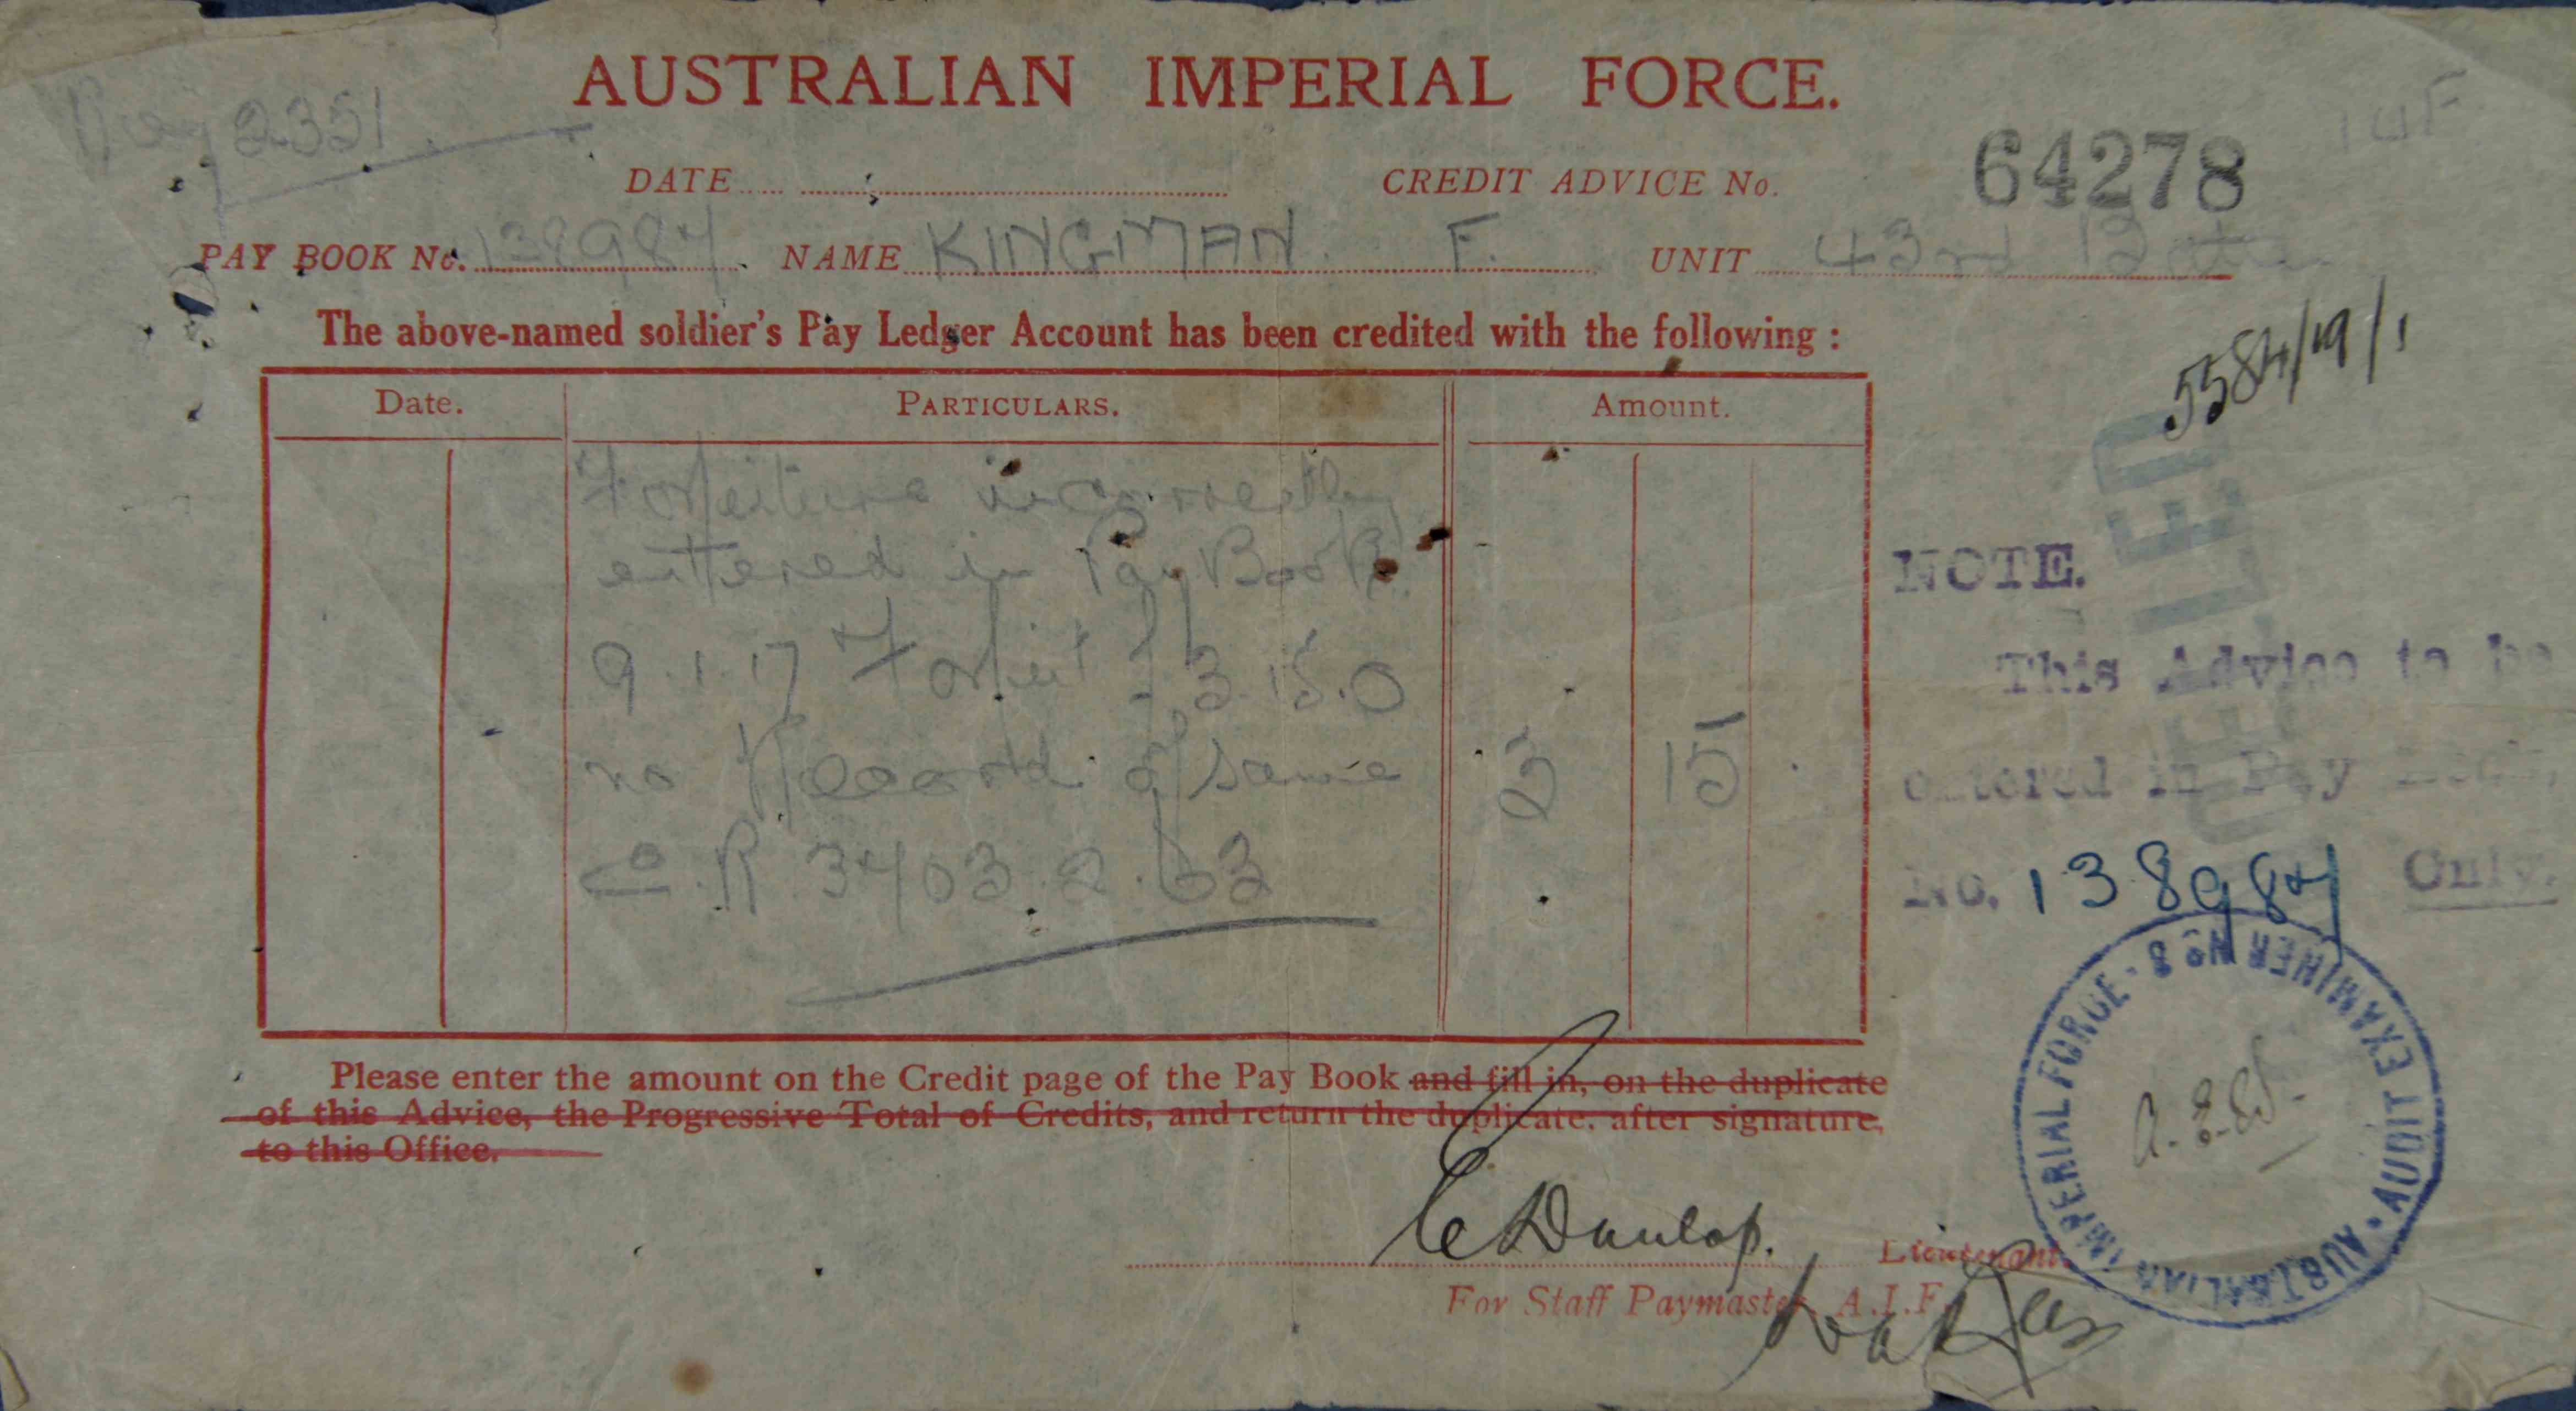 AUSTRALIAN IMPERIAL FORCE.
Reg 2351
DATE
CREDIT ADVICE No. 64278
PAY BOOK No. 138987 NAME KINGMAN F. UNIT 43rd Battn
The above-named soldier's Pay Ledger Account has been credited with the following :
5584/19/1
Date. PARTICULARS. Amount.
Forfeiture incorrectly
entered in Pay Book.
9.1.17 Forfeit £3.15.0
no Record of same
3 15
R 3403
NOTE.
This Advice to be
entered in Pay Book
No. 138987 Only.
CANCELLED
Please enter the amount on the Credit page of the Pay Book and fill in, on the duplicate
of this Advice, the Progressive Total of Credits, and return the duplicate, after signature,
to this Office.
C Dunlop. Lieutenant.
For Staff Paymaster, A.I.F.
AUSTRALIAN IMPERIAL FORCE · AUDIT EXAMINER No 8